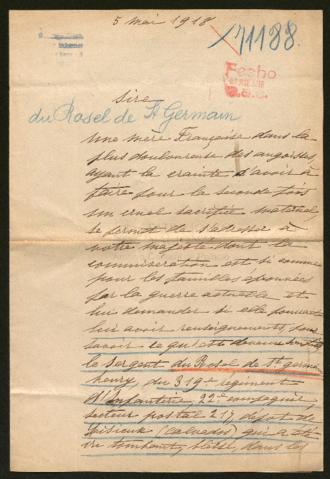 5 mai 1918
71188.
Fecho
Sire
du Rosel de St Germain
Une mère Française dans la
plus douloureuse des angoisses,
ayant la crainte d'avoir à
faire pour la seconde fois
un cruel sacrifice maternel
se permet de s'adresser à
votre majesté dont la
commisération est si connue
pour les familles éprouvées
par la guerre actuelle et
lui demander si elle pourrait
lui avoir renseignements pour
savoir ce qu'est devenu
le Sergent du Rosel de St germain
henry, du 319e régiment
d'Infanterie 22e compagnie,
secteur postal 217 dépot de
Lisieux (Calvados) qui a été
vu tombant, blessé, dans les